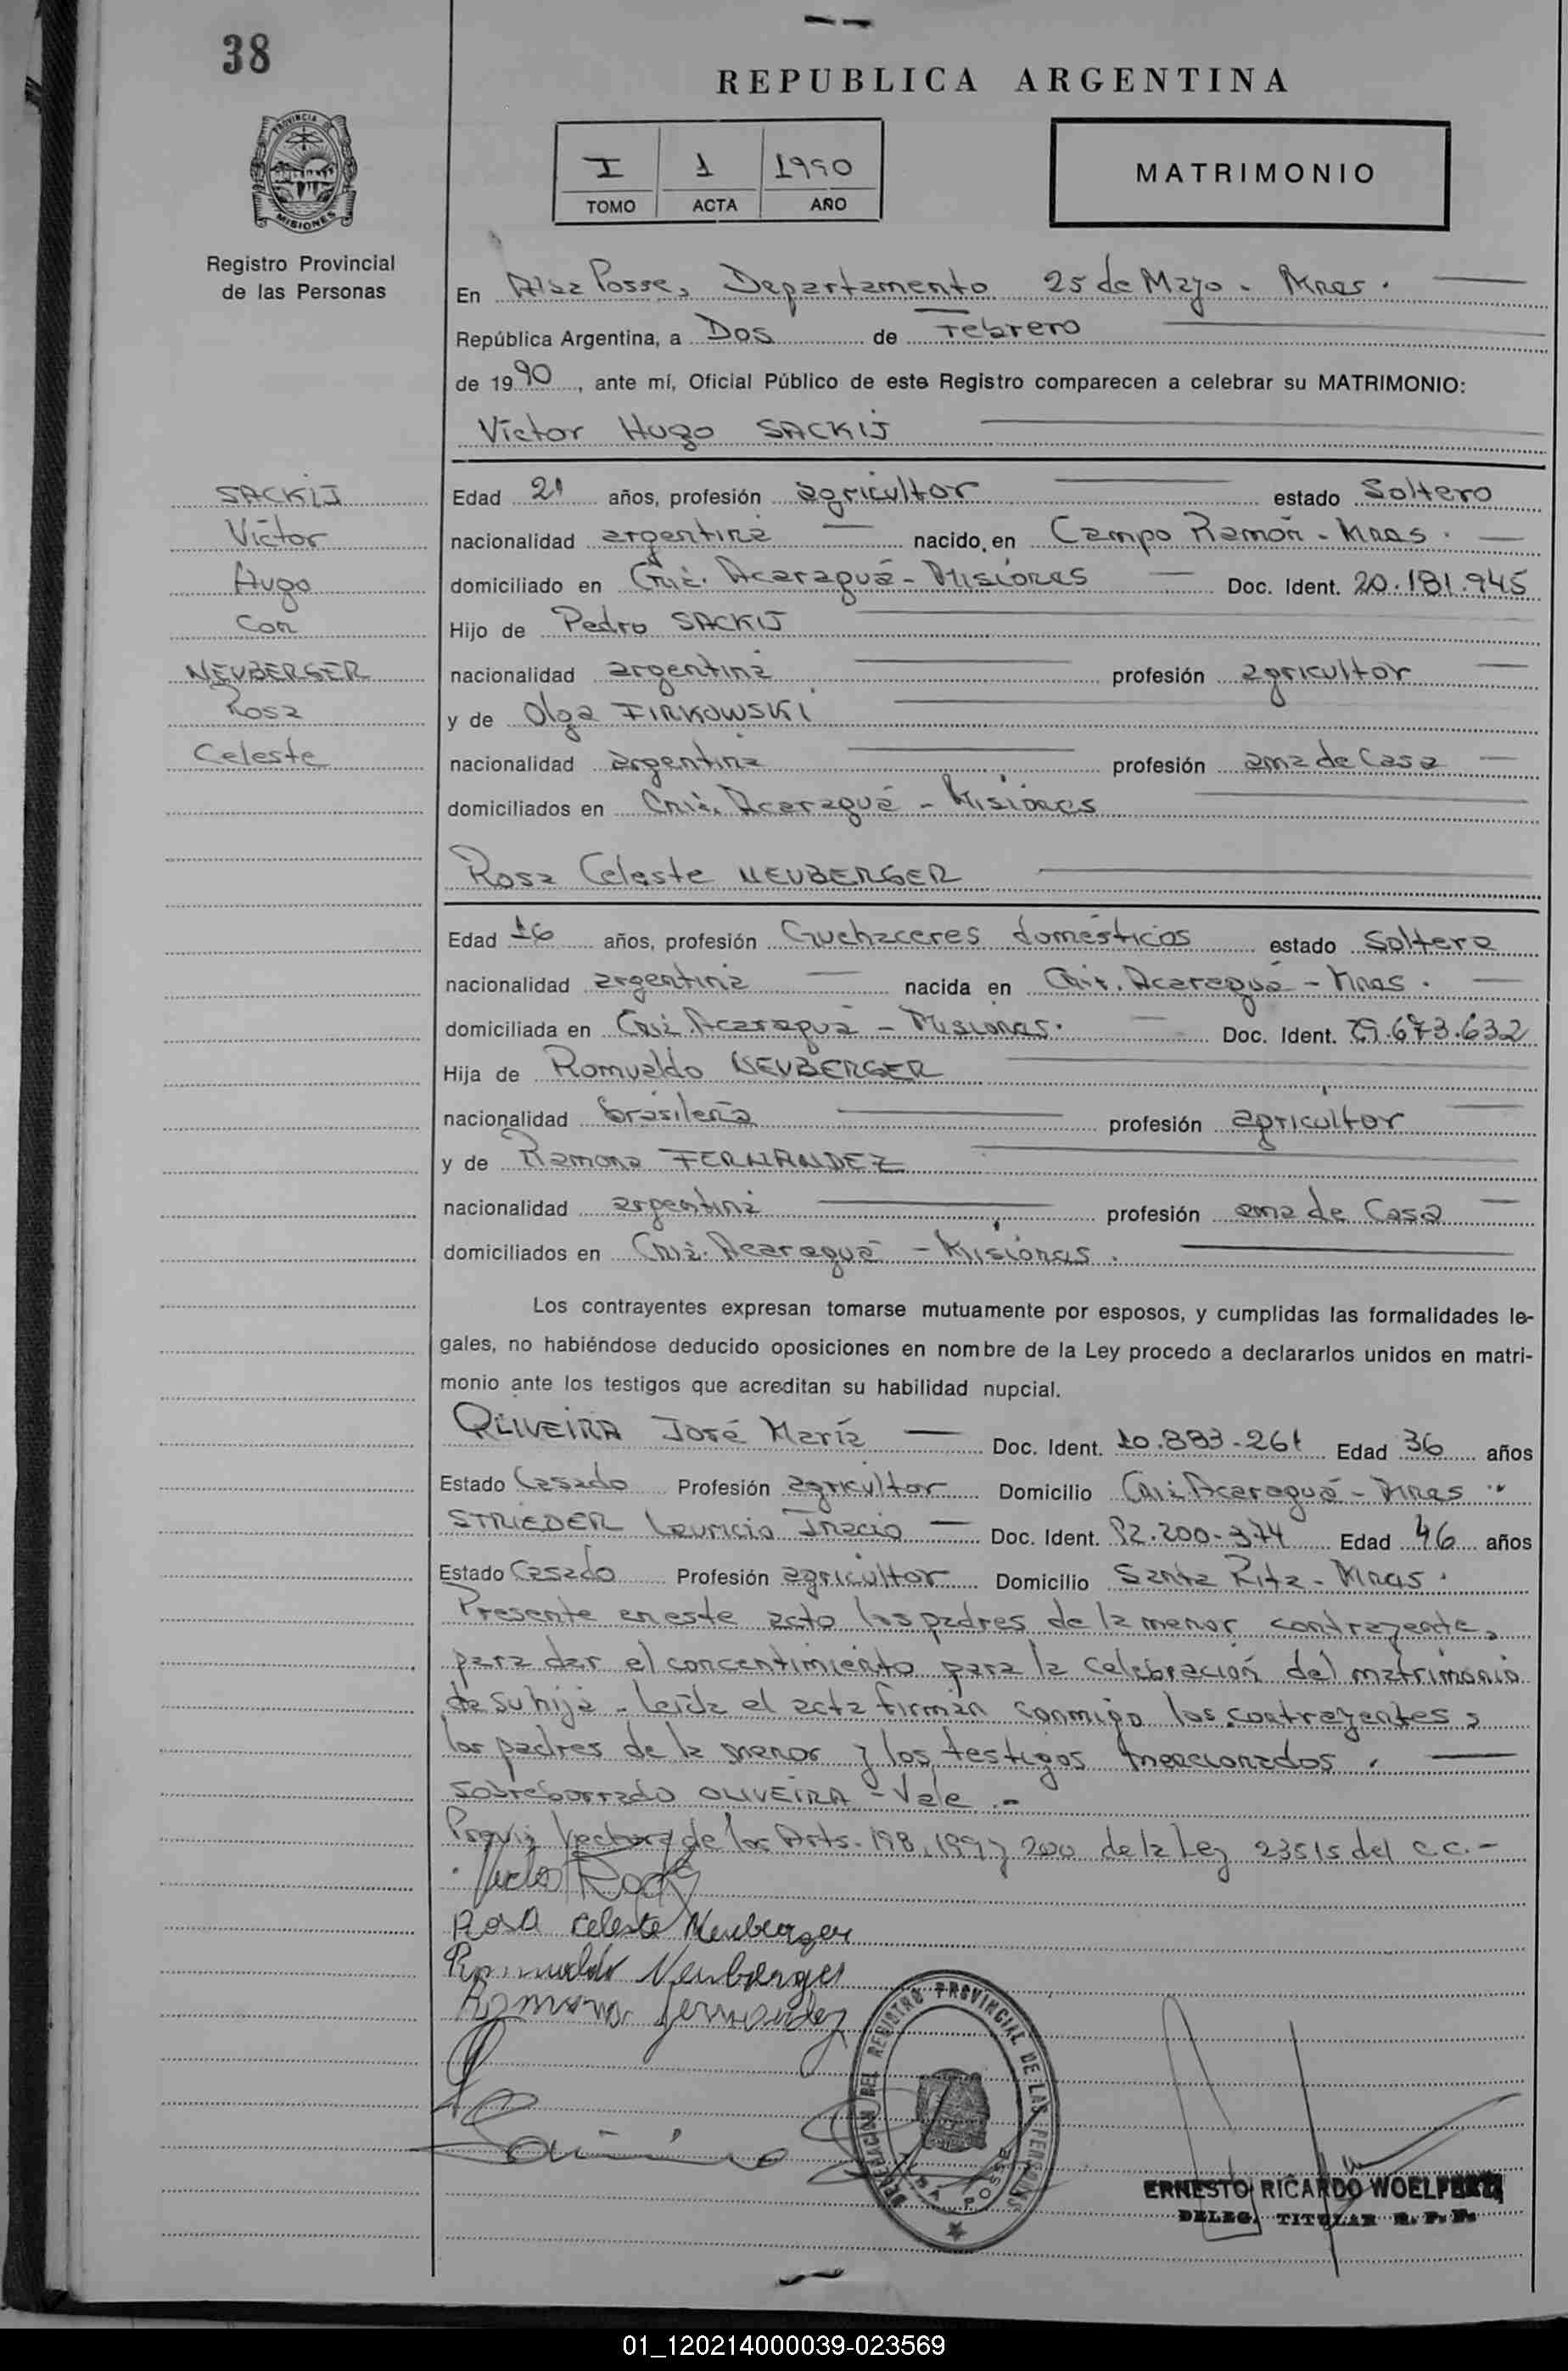 38
REPUBLICA ARGENTINA
PROVINCIA DE MISIONES
I 1 1990
TOMO ACTA AÑO
MATRIMONIO
Registro Provincial
de las Personas
En Alba Posse, Departamento 25 de Mayo - Mnes.
República Argentina, a Dos de Febrero
de 1990, ante mí, Oficial Público de este Registro comparecen a celebrar su MATRIMONIO:
Víctor Hugo SACKIJ
SACKIJ
Víctor
Hugo
Con
NEUBERGER
Rosa
Celeste
Edad 21 años, profesión agricultor estado Soltero
nacionalidad argentina nacido en Campo Ramón - Mnes.
domiciliado en Cnia. Acaraguá - Misiones Doc. Ident. 20.181.945
Hijo de Pedro SACKIJ
nacionalidad argentina profesión agricultor
y de Olga FIRKOWSKI
nacionalidad argentina profesión ama de Casa
domiciliados en Cnia. Acaraguá - Misiones
Rosa Celeste NEUBERGER
Edad 16 años, profesión Quehaceres domésticos estado Soltera
nacionalidad argentina nacida en Cnia. Acaraguá - Mnes.
domiciliada en Cnia. Acaraguá - Misiones. Doc. Ident. 673.632
Hija de Romualdo NEUBERGER
nacionalidad brasileña profesión agricultor
y de Ramona FERNANDEZ
nacionalidad argentina profesión ama de Casa
domiciliados en Cnia. Acaraguá - Misiones.
Los contrayentes expresan tomarse mutuamente por esposos, y cumplidas las formalidades le-
gales, no habiéndose deducido oposiciones en nombre de la Ley procedo a declararlos unidos en matri-
monio ante los testigos que acreditan su habilidad nupcial.
OLIVEIRA José María Doc. Ident. 10.883.261 Edad 36 años
Estado Casado Profesión agricultor Domicilio Cnia Acaraguá - Mnes
STRIEDER Lauricio Inacio Doc. Ident. 92.200.374 Edad 46 años
Estado Casado Profesión agricultor Domicilio Santa Rita - Mnes.
Presente en este acto los padres de la menor contrayente,
para dar el concentimiento para la celebración del matrimonio
de su hija - leída el acta firman conmigo los contrayentes,
los padres de la menor y los testigos mencionados.
Sobreborrado OLIVEIRA - Vale.-
Previa lectura de los Arts. 198, 199 y 200 de la Ley 23515 del C.C.-
Rosa Celeste Neuberger
Romualdo Neuberger
Ramona Fernandez
DELEGACION DEL REGISTRO PROVINCIAL DE LAS PERSONAS
ALBA POSSE
ERNESTO RICARDO
DELEG. TITULAR R. P. P.
01_120214000039-023569